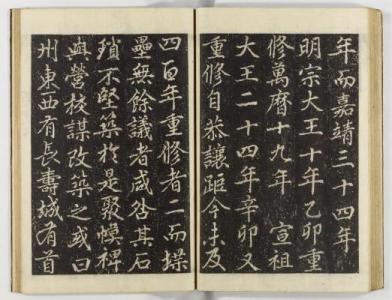 年而嘉靖三十四年
明宗大王十年乙卯重
修萬曆十九年 宣祖
大王二十四年辛卯又
重修自恭讓距今未及
四百年重修者二而堞
壘無餘議者咸咎其石
頹不堅築於是聚幙裨
與營校謀改築之或曰
州東西有長壽城有首